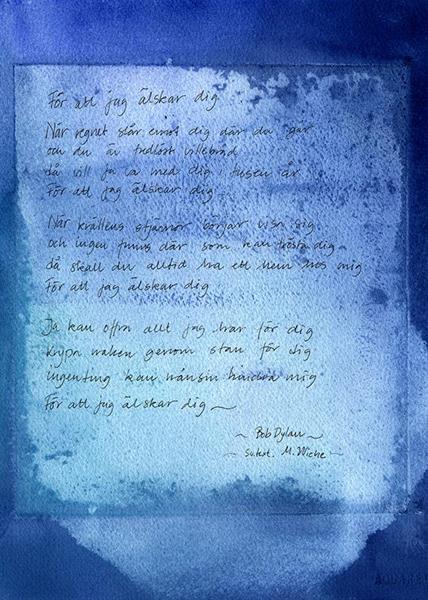 För att jag älskar dig
När regnet slår emot dig där du går
och du är fredlöst villebråd
då vill ja va med dig i tusen år
För att jag älskar dig
När kvällens stjärnor börjar visa sig
och ingen finns där som kan trösta dig
då skall du alltid ha ett hem hos mig
För att jag älskar dig
Ja kan offra allt jag har för dig
krypa naken genom stan för dig
ingenting kan nånsin hindra mig
För att jag älskar dig ~
~ Bob Dylan ~
~ Sv.text. M. Wiehe ~